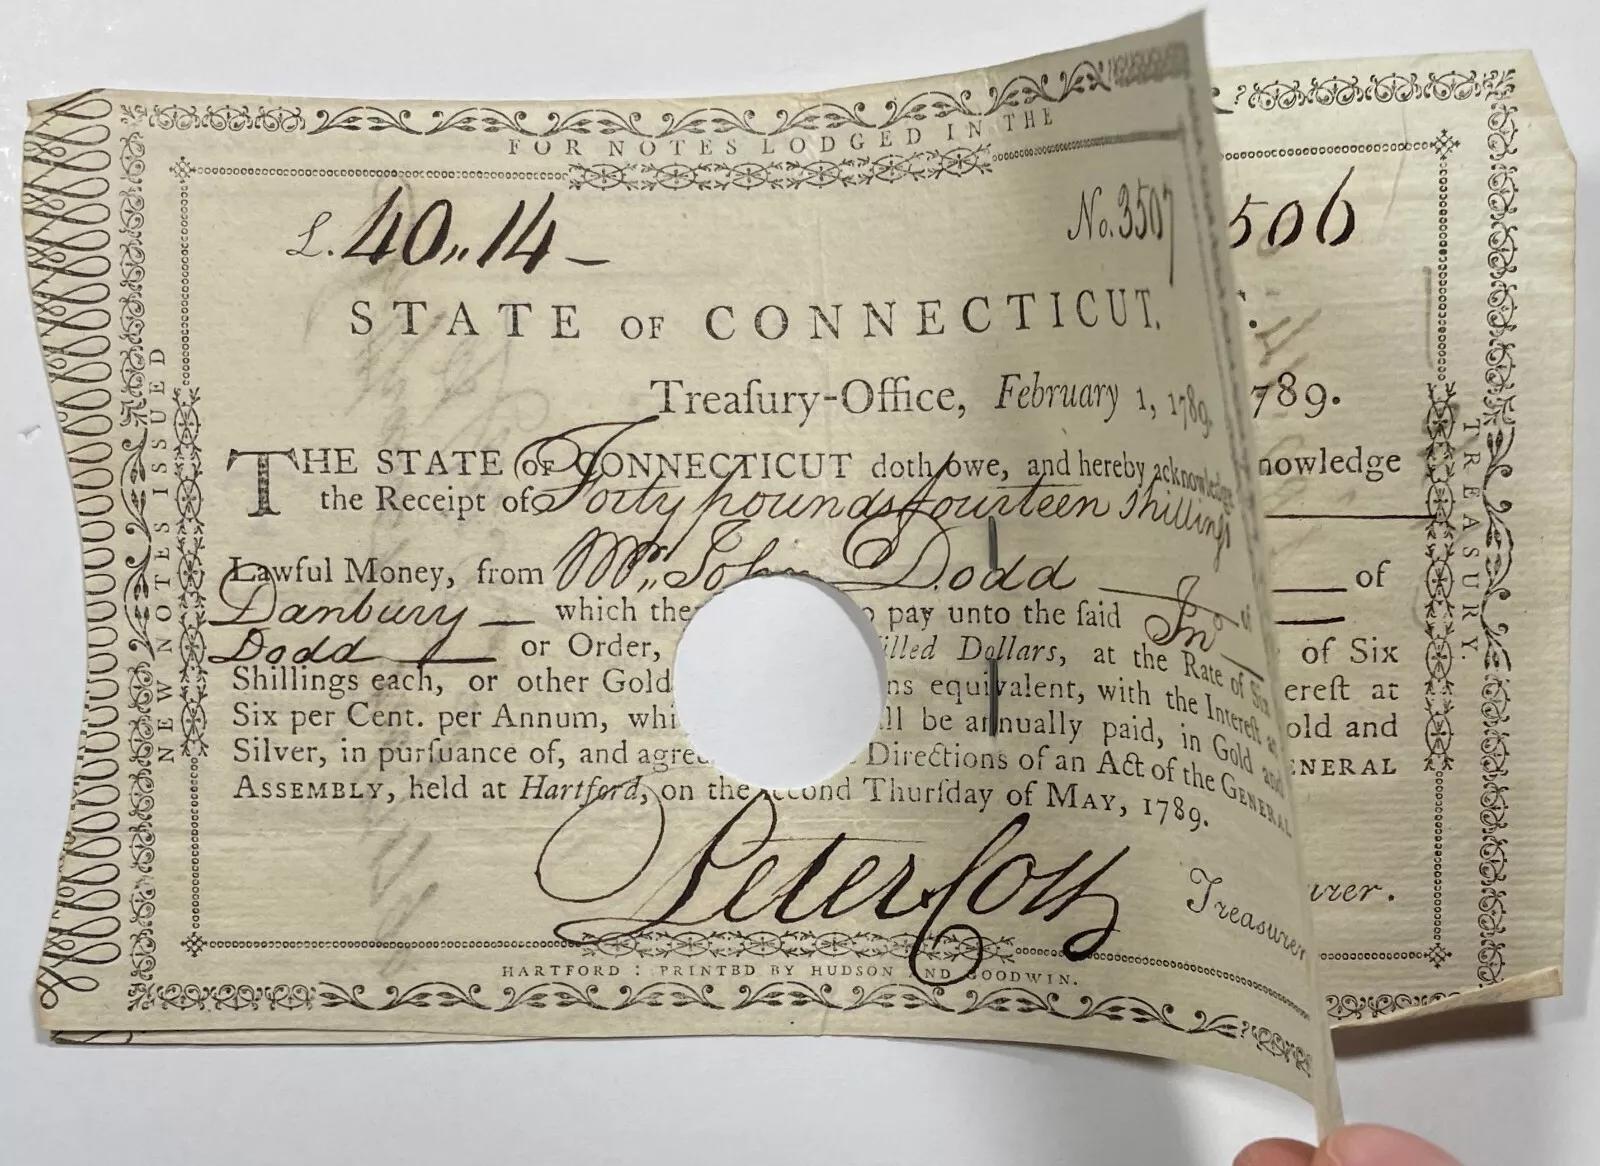 FOR NOTES LODGED IN THE
£. 40,,14 –
No. 3507
506
STATE OF CONNECTICUT.
Treaſury-Office, February 1, 1789.
789.
THE STATE OF CONNECTICUT doth owe, and hereby acknowledge
nowledge
the Receipt of Forty pounds fourteen Shillings
Lawful Money, from Mr,, John Dodd of
of
Danbury — which the o pay unto the ſaid Jnº
Dodd — or Order, illed Dollars, at the Rate of Six
of Six
Shillings each, or other Gold ns equivalent, with the Intereſt at
ereſt at
Six per Cent. per Annum, whi ll be annually paid, in Gold and
old and
Silver, in purſuance of, and agree Directions of an Act of the GENERAL
ENERAL
ASSEMBLY, held at Hartford, on the ſecond Thurſday of MAY, 1789.
Peter Colt Treasurer
urer.
HARTFORD: PRINTED BY HUDSON AND GOODWIN.
NEW NOTES ISSUED
TREASURY.